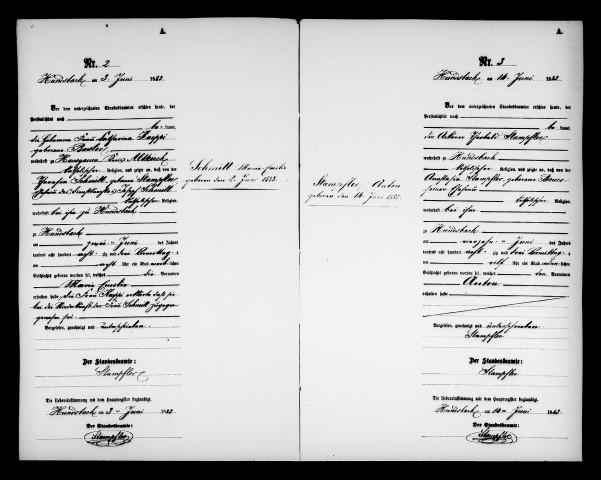 A.
Nr. 2
Hundsbach am 3 Juni 1883
Vor dem unterzeichneten Standesbeamten erschien heute, der
Persönlichkeit nach
be kannt,
die Hebamme Frau Katharina Happi
geborene Bader
wohnhaft zu Kreis Altkirch
katholischer Religion, und zeigte an, daß von der
Theresia Schmitt, geborene Stampfler,
Joseph Schmitt
katholischer Religion,
wohnhaft bei ihm zu Hundsbach
zu Hundsbach
am zwei ten Juni des Jahres
tausend acht hundert acht zig und drei Vormittags
um acht Uhr ein Kind weib lichen
Geschlechts geboren worden sei, welches die Vornamen
Marie
erhalten habe. Die Frau Happi erklärte daß sie
bei der Niederkunft der Frau Schmitt zugegen
gewesen sei.
Vorgelesen, genehmigt und unterschrieben.
Der Standesbeamte:
Stampfler
Die Uebereinstimmung mit dem Hauptregister beglaubigt.
Hundsbach am 3 ten Juni 1883
Der Standesbeamte:
Stampfler
Schmitt Marie
geboren den 2. Juni 1883.
Stampfler Anton
geboren den 14. Juni 1883.
A.
Nr. 3
Hundsbach am 14 Juni 1883
Vor dem unterzeichneten Standesbeamten erschien heute, der
Persönlichkeit nach
be kannt,
der Ackerer Stampfler,
wohnhaft zu Hundsbach
katholischer Religion, und zeigte an, daß von der
Stampfler, geborene
seiner Ehefrau
katholischer Religion,
wohnhaft bei ihm
zu Hundsbach
am vierzehn ten Juni des Jahres
tausend acht hundert acht zig und drei Vormittags
um elf Uhr ein Kind männ lichen
Geschlechts geboren worden sei, welches den Vornamen
Anton
erhalten habe
Vorgelesen, genehmigt und unterschrieben
Stampfler
Der Standesbeamte:
Stampfler
Die Uebereinstimmung mit dem Hauptregister beglaubigt.
Hundsbach am 14 ten Juni 1883
Der Standesbeamte:
Stampfler